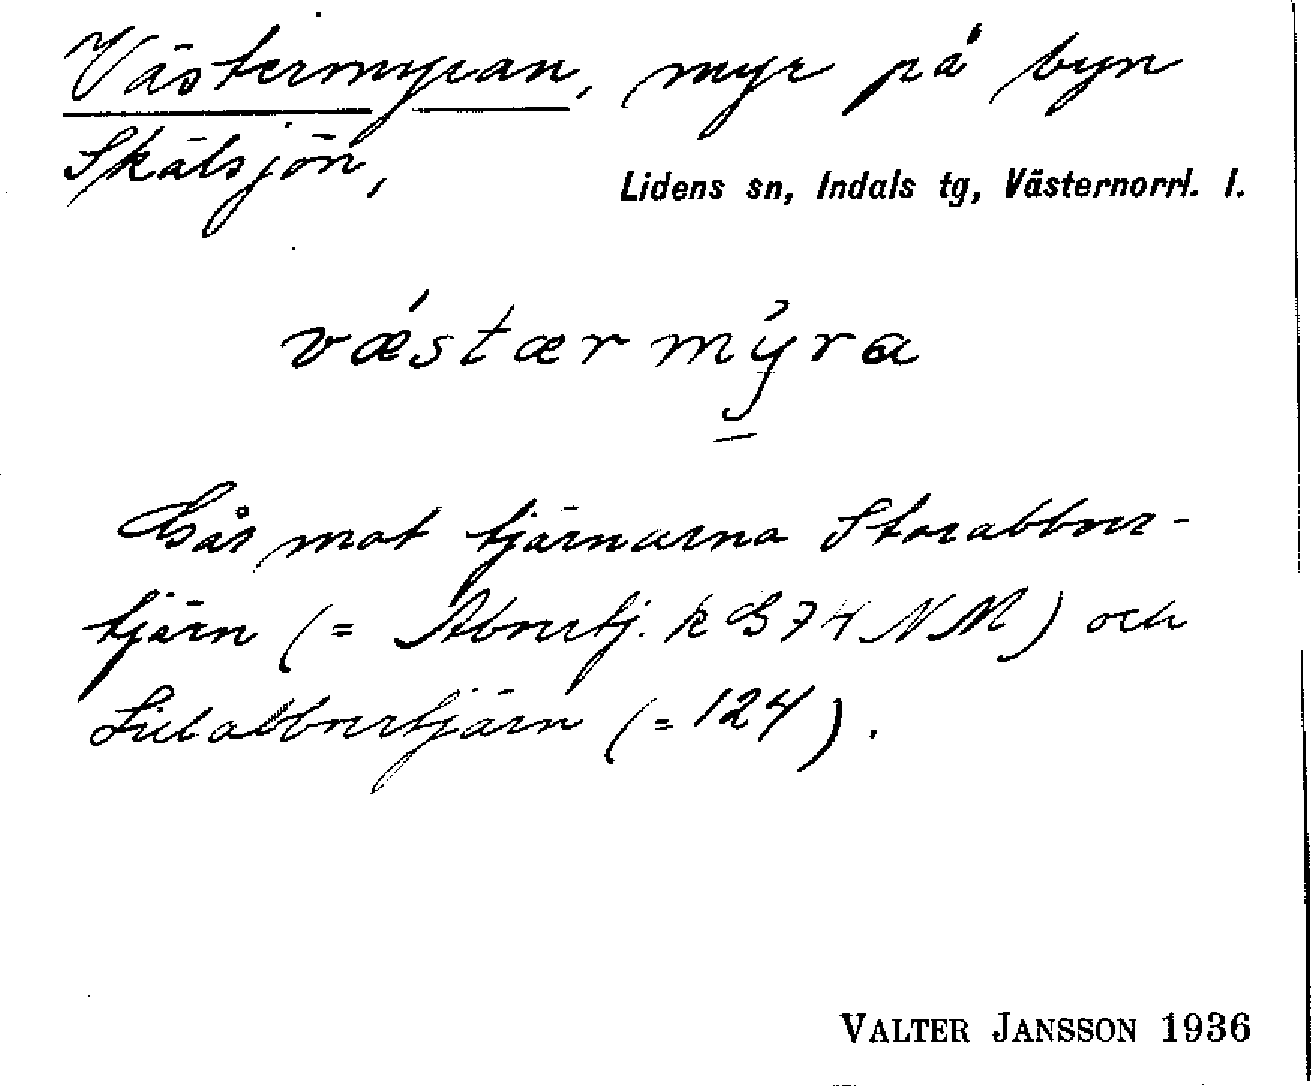 Västermyran, myr på byn
Skälsjön,
Lidens sn, Indals tg, Västernorrl. l.
væ´stærmỳ̱ra
Går mot tjärnarna Storabborr-
tjärn (= Abborrtj. k G74 NM) och
Lillabborrtjärn (= 124).
VALTER JANSSON 1936